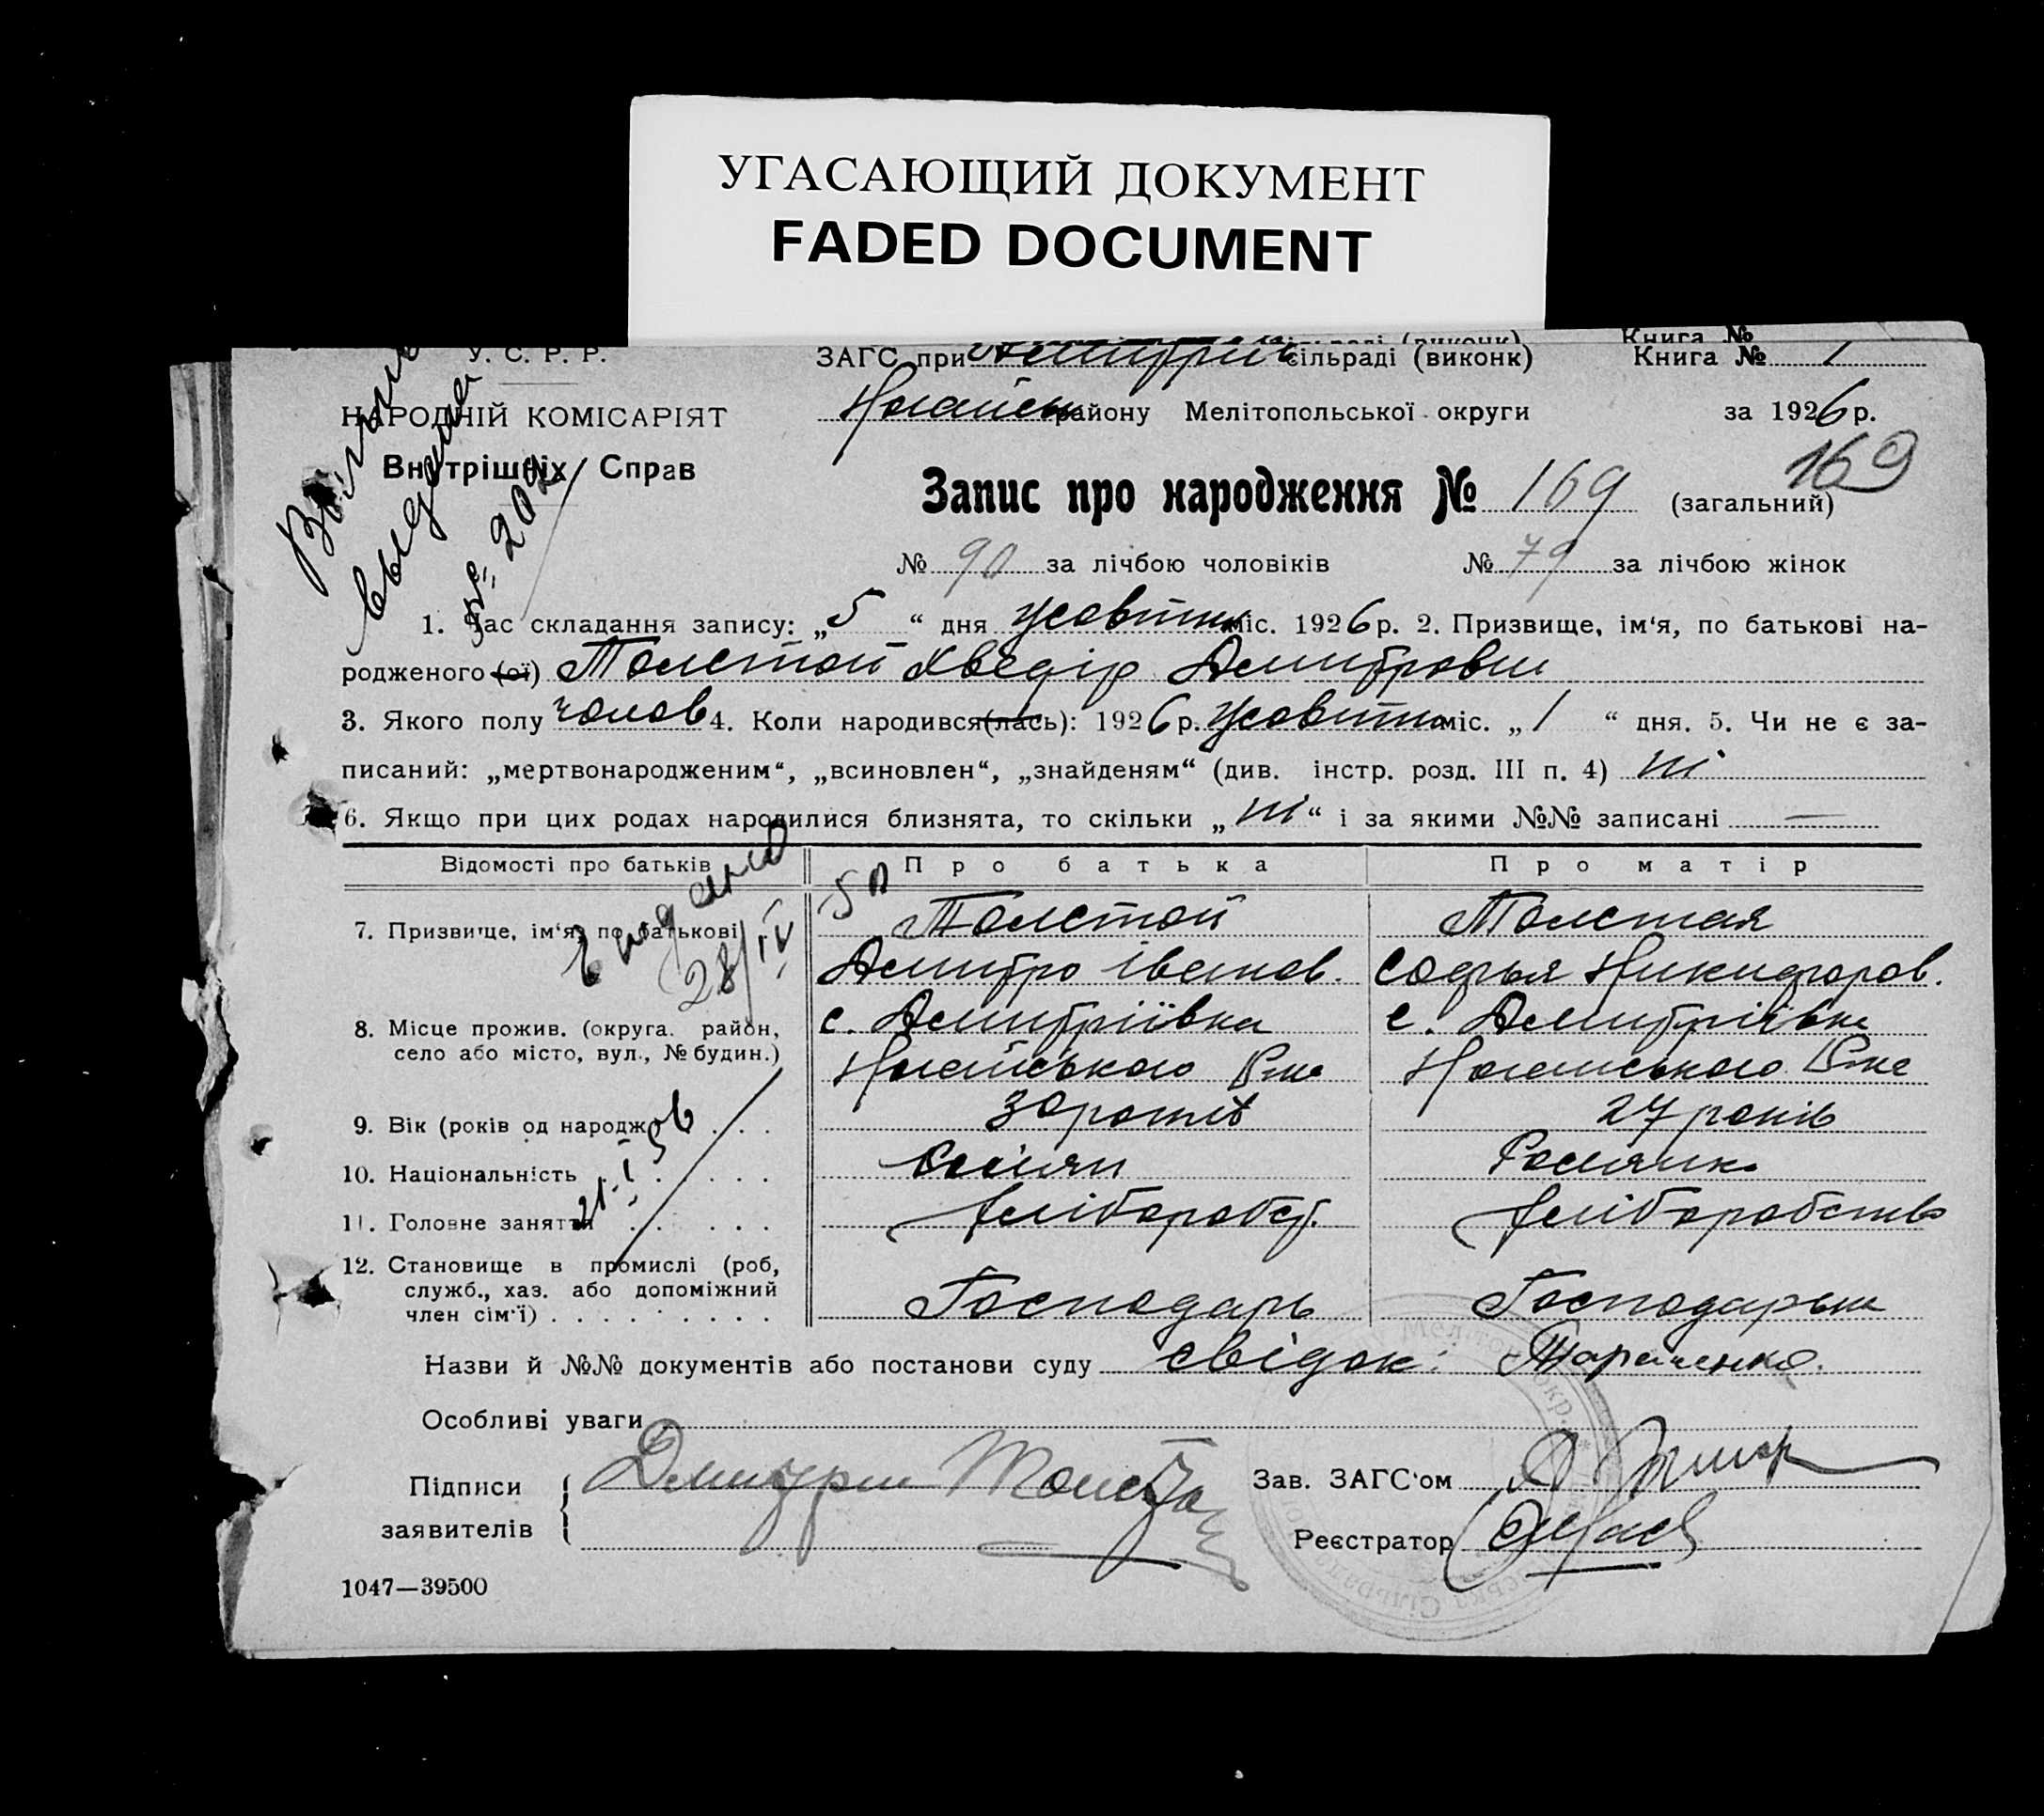 УГАСАЮЩИЙ ДОКУМЕНТ
FADED DOCUMENT
Книга №
У. С. Р. Р.
ЗАГС при сільраді (виконк) Книга № 1
НАРОДНІЙ КОМІСАРІЯТ
району Мелітопольської округи за 1926 р.
Внутрішніх Справ
169
Запис про народження № 169 (загальний)
№ 90 за лічбою чоловіків № 79 за лічбою жінок
1. Час складання запису: „5“ дня жовтня міс. 1926 р. 2. Призвище, ім‘я, по батькові на-
родженого (ої) Толстой Хведір Дмитрович
3. Якого полу чолов 4. Коли народився (лась): 1926 р. жовтня міс. „1“ дня. 5. Чи не є за-
писаний: „мертвонародженим“, „всиновлен“, „знайденям“ (див. інстр. розд. III п. 4) ні
6. Якщо при цих родах народилися близнята, то скільки „ні“ і за якими №№ записані —
Відомості про батьків Про батька Про матір
7. Призвище, ім‘я, по батькові Толстой Толстая
Дмитро Іванов. Софья Никифоров.
28/IV
8. Місце прожив. (округа. район, с. Дмитріівка с. Дмитріівка
село або місто, вул., № будин.)
Ногайського Р-на Ногайського Р-на
9. Вік (років од народж.) 30 років 27 років
10. Національність Росіян Росіянка
21-I 56
11. Головне заняття хліборобст. хліборобство
12. Становище в промислі (роб,
служб., хаз. або допоміжний
член сім‘ї) Господарь Господарька
Назви й №№ документів або постанови суду свідок: Тараненко.
Особливі уваги
Підписи Дмитрий Толстой Зав. ЗАГС‘ом
заявителів Реєстратор
1047—39500